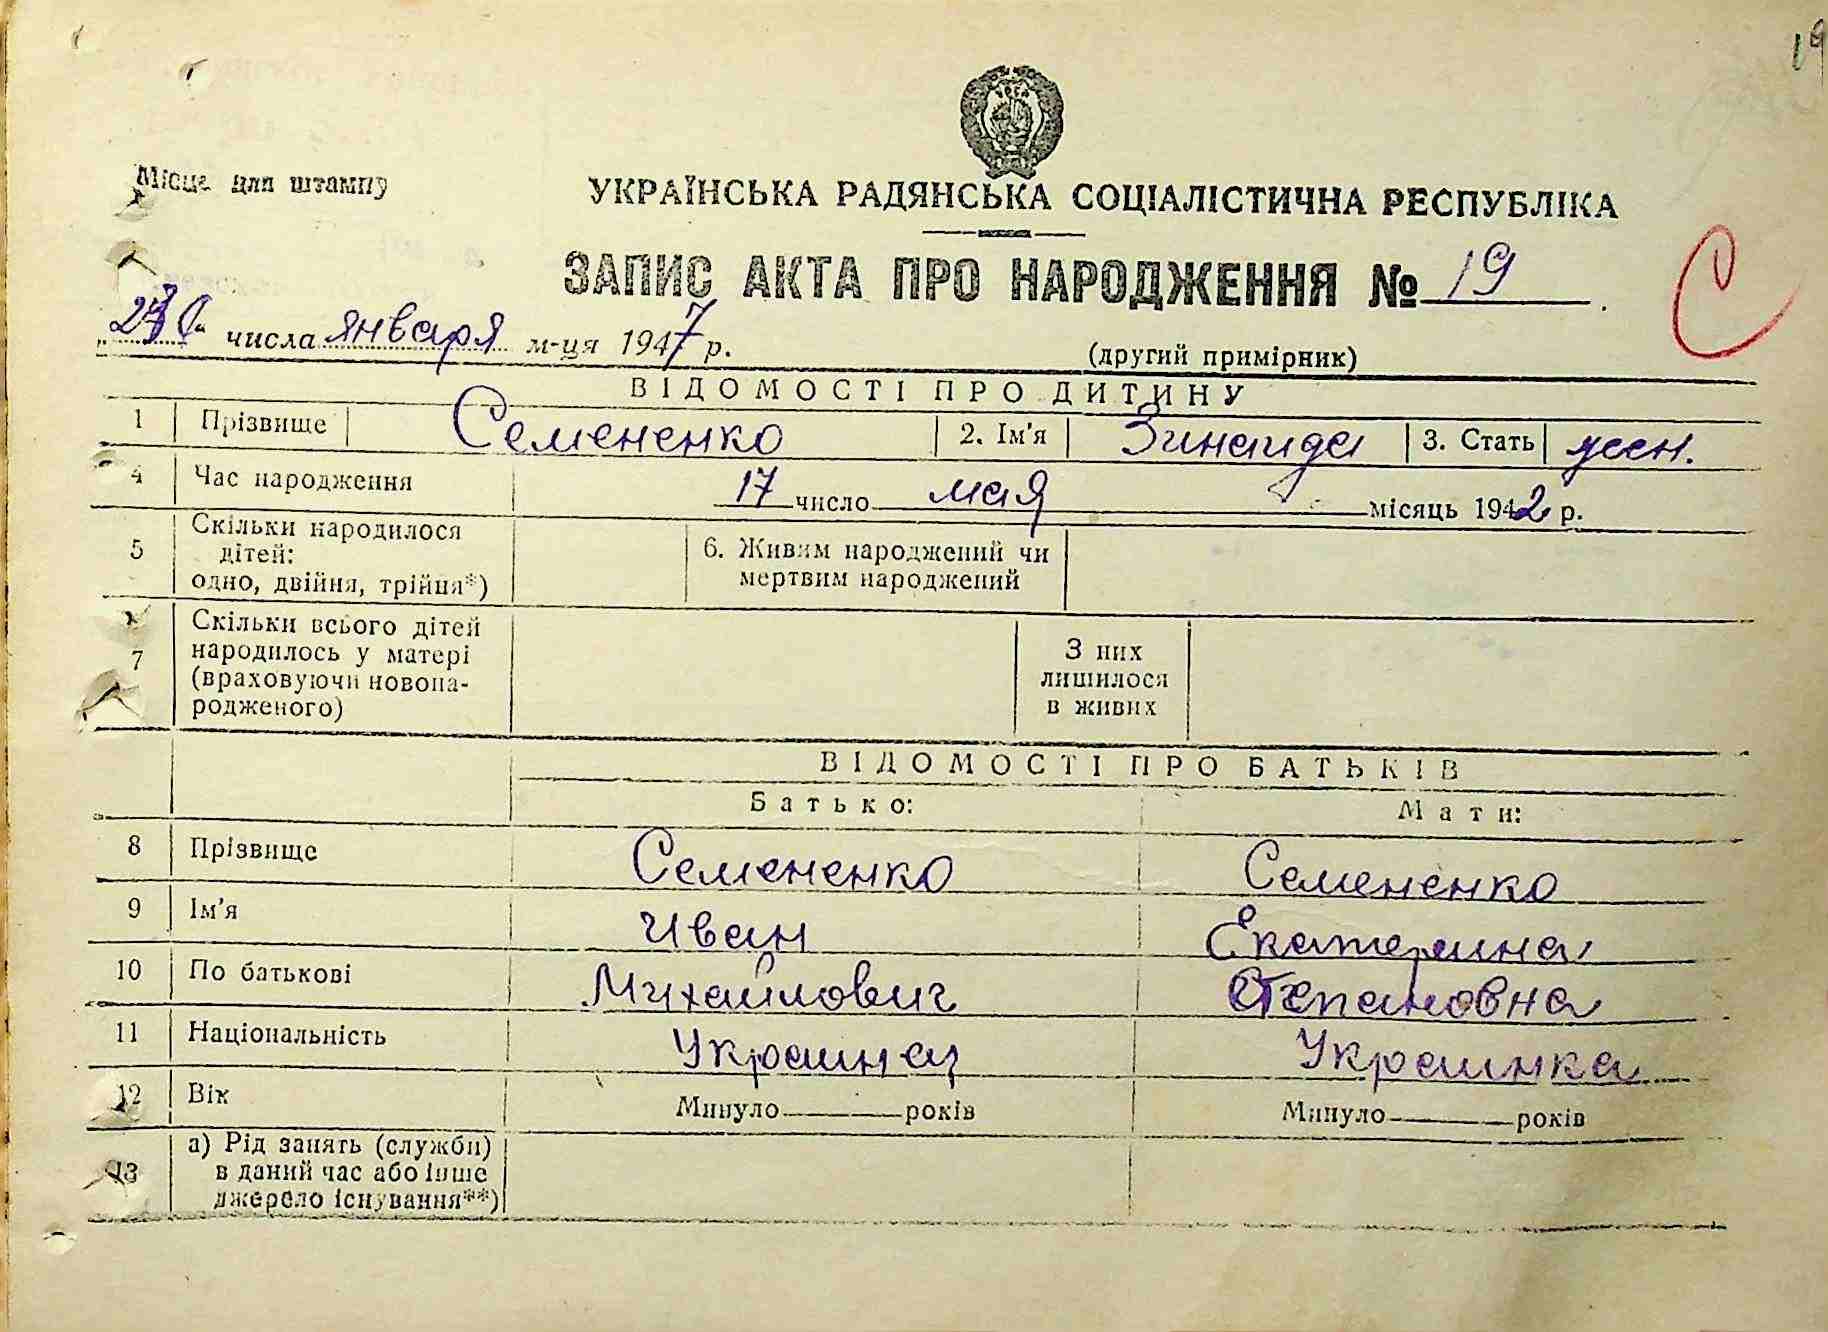 19
Місце для штампу
УКРАЇНСЬКА РАДЯНСЬКА СОЦІАЛІСТИЧНА РЕСПУБЛІКА
ЗАПИС АКТА ПРО НАРОДЖЕННЯ № 19
С
числа января м-ця 1947 р.
(другий примірник)
ВІДОМОСТІ ПРО ДИТИНУ
1 Прізвище Семененко 2. Ім'я Зинаида 3. Стать жен.
4 Час народження 17 число мая місяць 1942 р.
5 Скільки народилося дітей: одно, двійня, трійня*) 6. Живим народжений чи мертвим народжений
7 Скільки всього дітей народилось у матері (враховуючи новонародженого) З них лишилося в живих
ВІДОМОСТІ ПРО БАТЬКІВ
Батько: Мати:
8 Прізвище Семененко Семененко
9 Ім'я Иван Екатерина
10 По батькові Михайлович Степановна
11 Національність Украинец Украинка
12 Вік Минуло років Минуло років
13 а) Рід занять (служби) в даний час або інше джерело існування**)